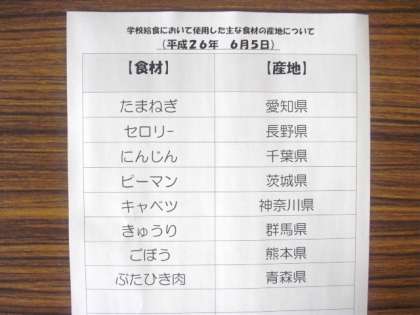 学校給食において使用した主な食材の産地について
(平成26年 6月5日)
【食材】 【産地】
たまねぎ 愛知県
セロリー 長野県
にんじん 千葉県
ピーマン 茨城県
キャベツ 神奈川県
きゅうり 群馬県
ごぼう 熊本県
ぶたひき肉 青森県